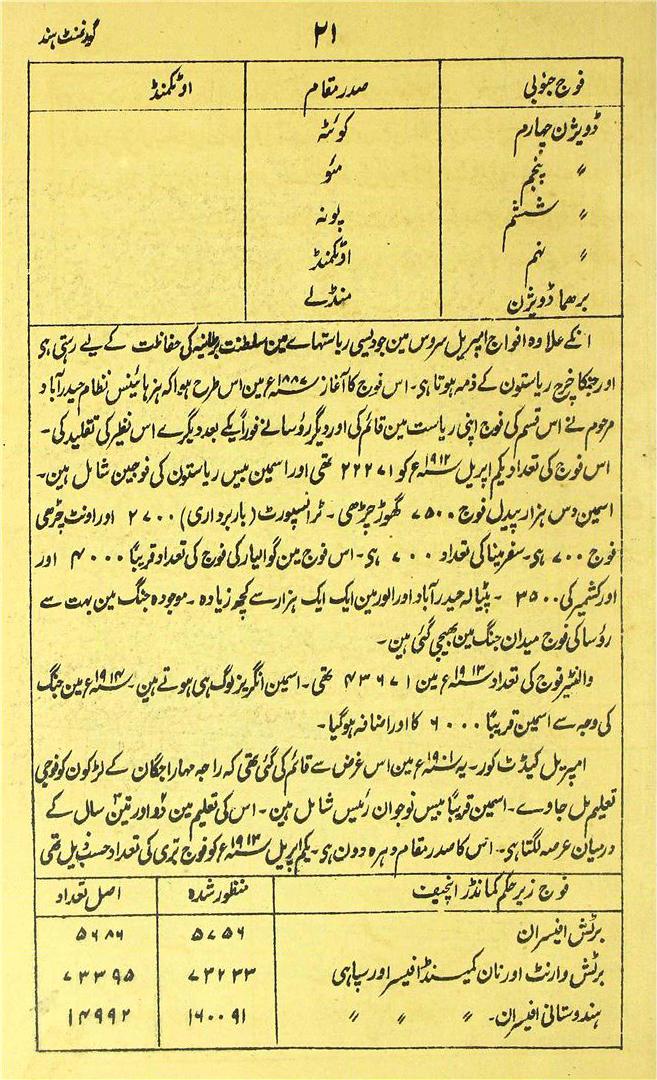 ۲۱ گورنمنٹ ہند
فوج جنوبی صدر مقام اوٹکمنڈ
ڈویژن چہارم کوئٹہ
〃 پنجم مئو
〃 ششم پونہ
〃 نہم اوٹکمنڈ
برھما ڈویژن منڈلے
انکے علاوہ افواج امپریل سروس مین جو دیسی ریاستہاے مین سلطنت برطانیہ کی حفاظت کے لیے رہتی ہی
اور جنکا خرچ ریاستون کے ذمہ ہوتا ہی۔ اس فوج کا آغاز ۱۸۸۷ء مین اس طرح ہوا کہ ہز ہائینس نظام حیدرآباد
مرحوم نے اس قسم کی فوج اپنی ریاست مین قائم کی اور دیگر رؤسا نے فوراً یکے بعد دیگرے اس نظیر کی تقلید کی۔
اس فوج کی تعداد یکم اپریل ۱۹۱۲ء کو ۲۲۲۷۱ تھی اور اسمین بیس ریاستون کی فوجین شامل ہین۔
اسمین دس ہزار پیدل فوج ۷۵۰۰ گھوڑ چڑھی۔ ٹرانسپورٹ (باربرداری) ۲۷۰۰ اور اونٹ چڑھی
فوج ۷۰۰ ہی۔ سفر مینا کی تعداد ۷۰۰ ہی۔ اس فوج مین گوالیار کی فوج کی تعداد قریباً ۴۰۰۰ اور
اور کشمیر کی ۳۵۰۰ ۔ پٹیالہ حیدرآباد اور الور مین ایک ایک ہزار سے کچھ زیادہ۔ موجودہ جنگ مین بہت سے
رؤسا کی فوج میدان جنگ مین بھیجی گئی ہین۔
والنٹیر فوج کی تعداد ۱۹۱۳ء مین ۴۳۶۷۱ تھی۔ اسمین انگریز لوگ ہی ہوتے ہین۔ ۱۹۱۴ء مین جنگ
کی وجہ سے اسمین قریباً ۶۰۰۰ کا اور اضافہ ہوگیا۔
امپریل کیڈٹ کور۔ یہ ۱۹۰۱ء مین اس غرض سے قائم کی گئی تھی کہ راجہ مہاراجگان کے لڑکون کو فوجی
تعلیم مل جاوے۔ اسمین قریباً بیس نوجوان رئیس شامل ہین۔ اس کی تعلیم مین دو اور تین سال کے
درمیان عرصہ لگتا ہی۔ اس کا صدر مقام دہرہ دون ہی۔ یکم اپریل ۱۹۱۳ء کو فوج بری کی تعداد حسب ذیل تھی
فوج زیر حکم کمانڈر انچیف منظور شدہ اصل تعداد
برٹش افیسران ۵۷۵۶ ۵۶۸۶
برٹش وارنٹ اور نان کمیسنڈ افیسر اور سپاہی ۷۳۲۳۳ ۷۳۳۹۵
ہندوستانی افیسران۔ 〃 〃 〃 ۱۶۰۰۹۱ ۱۴۹۹۲